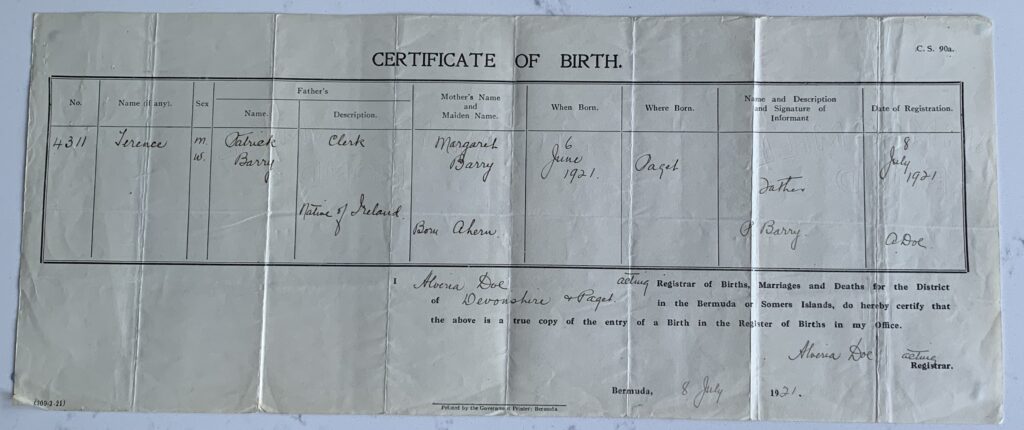 C. S. 90a.
CERTIFICATE OF BIRTH.
No.
Name (if any).
Sex
Father's
Name.
Description.
Mother's Name
and
Maiden Name.
When Born.
Where Born.
Name and Description
and Signature of
Informant
Date of Registration.
4311
Terence
m.
W.
Patrick
Barry
Clerk
Native of Ireland.
Margaret
Barry
Born Ahern.
6
June
1921.
Paget
Father
P Barry.
8
July
1921
A Doe.
I Alveria Doe acting Registrar of Births, Marriages and Deaths for the District
of Devonshire & Paget in the Bermuda or Somers Islands, do hereby certify that
the above is a true copy of the entry of a Birth in the Register of Births in my Office.
Alveria Doe acting
Registrar.
Bermuda, 8 July 1921.
Printed by the Government Printer; Bermuda.